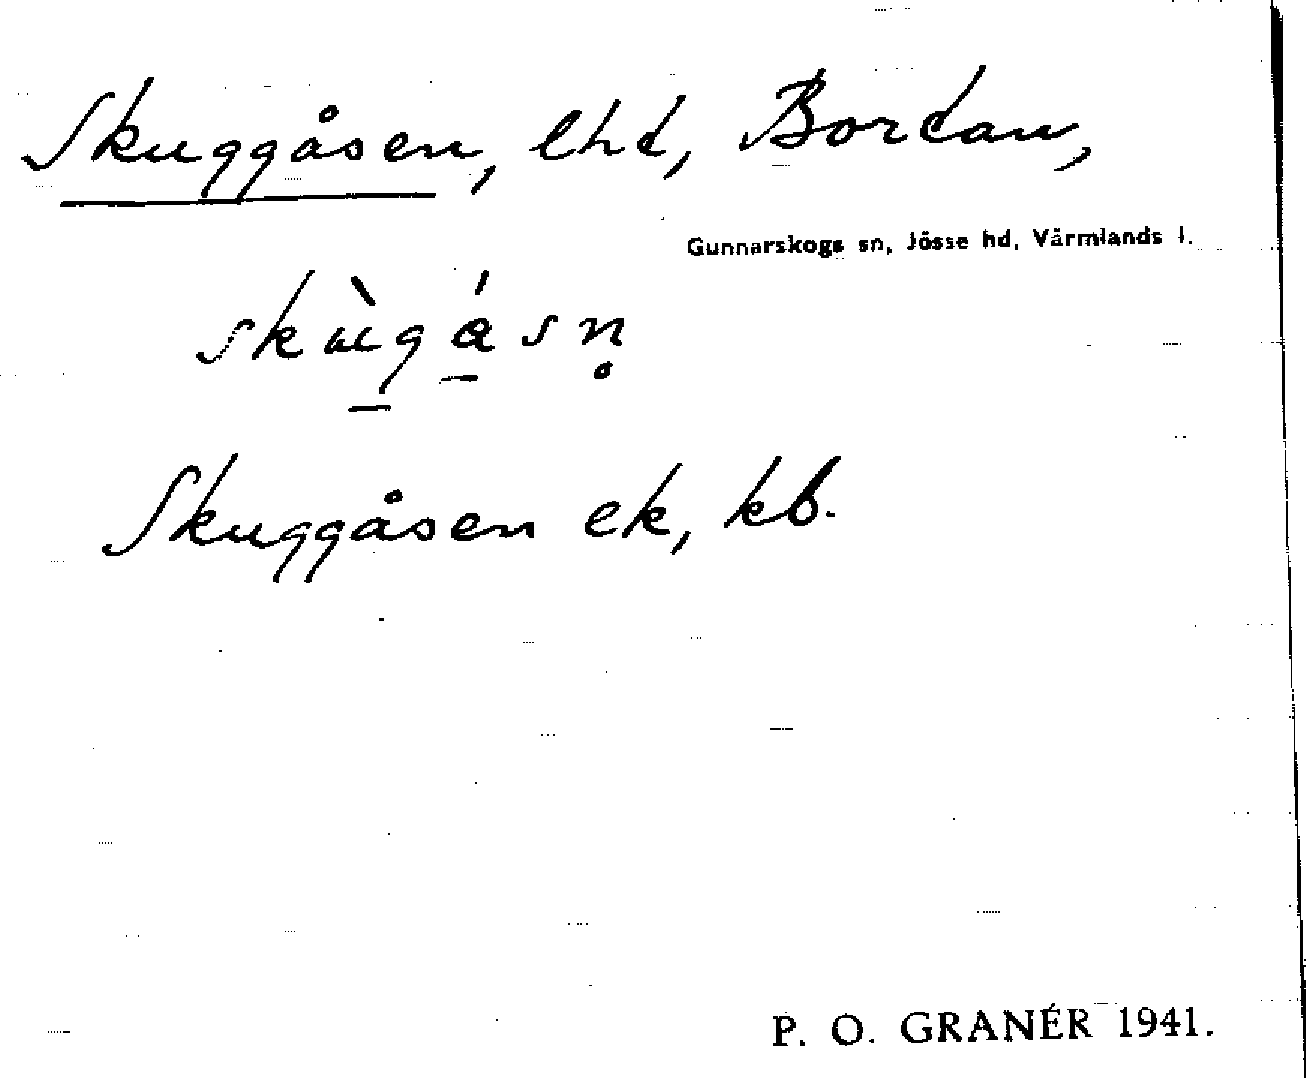 Skuggåsen, lhd, Bordan,
Gunnarskogs sn, Jösse hd, Värmlands l.
skùgásn̥
Skuggåsen ek, kb.
P. O. GRANÉR 1941.